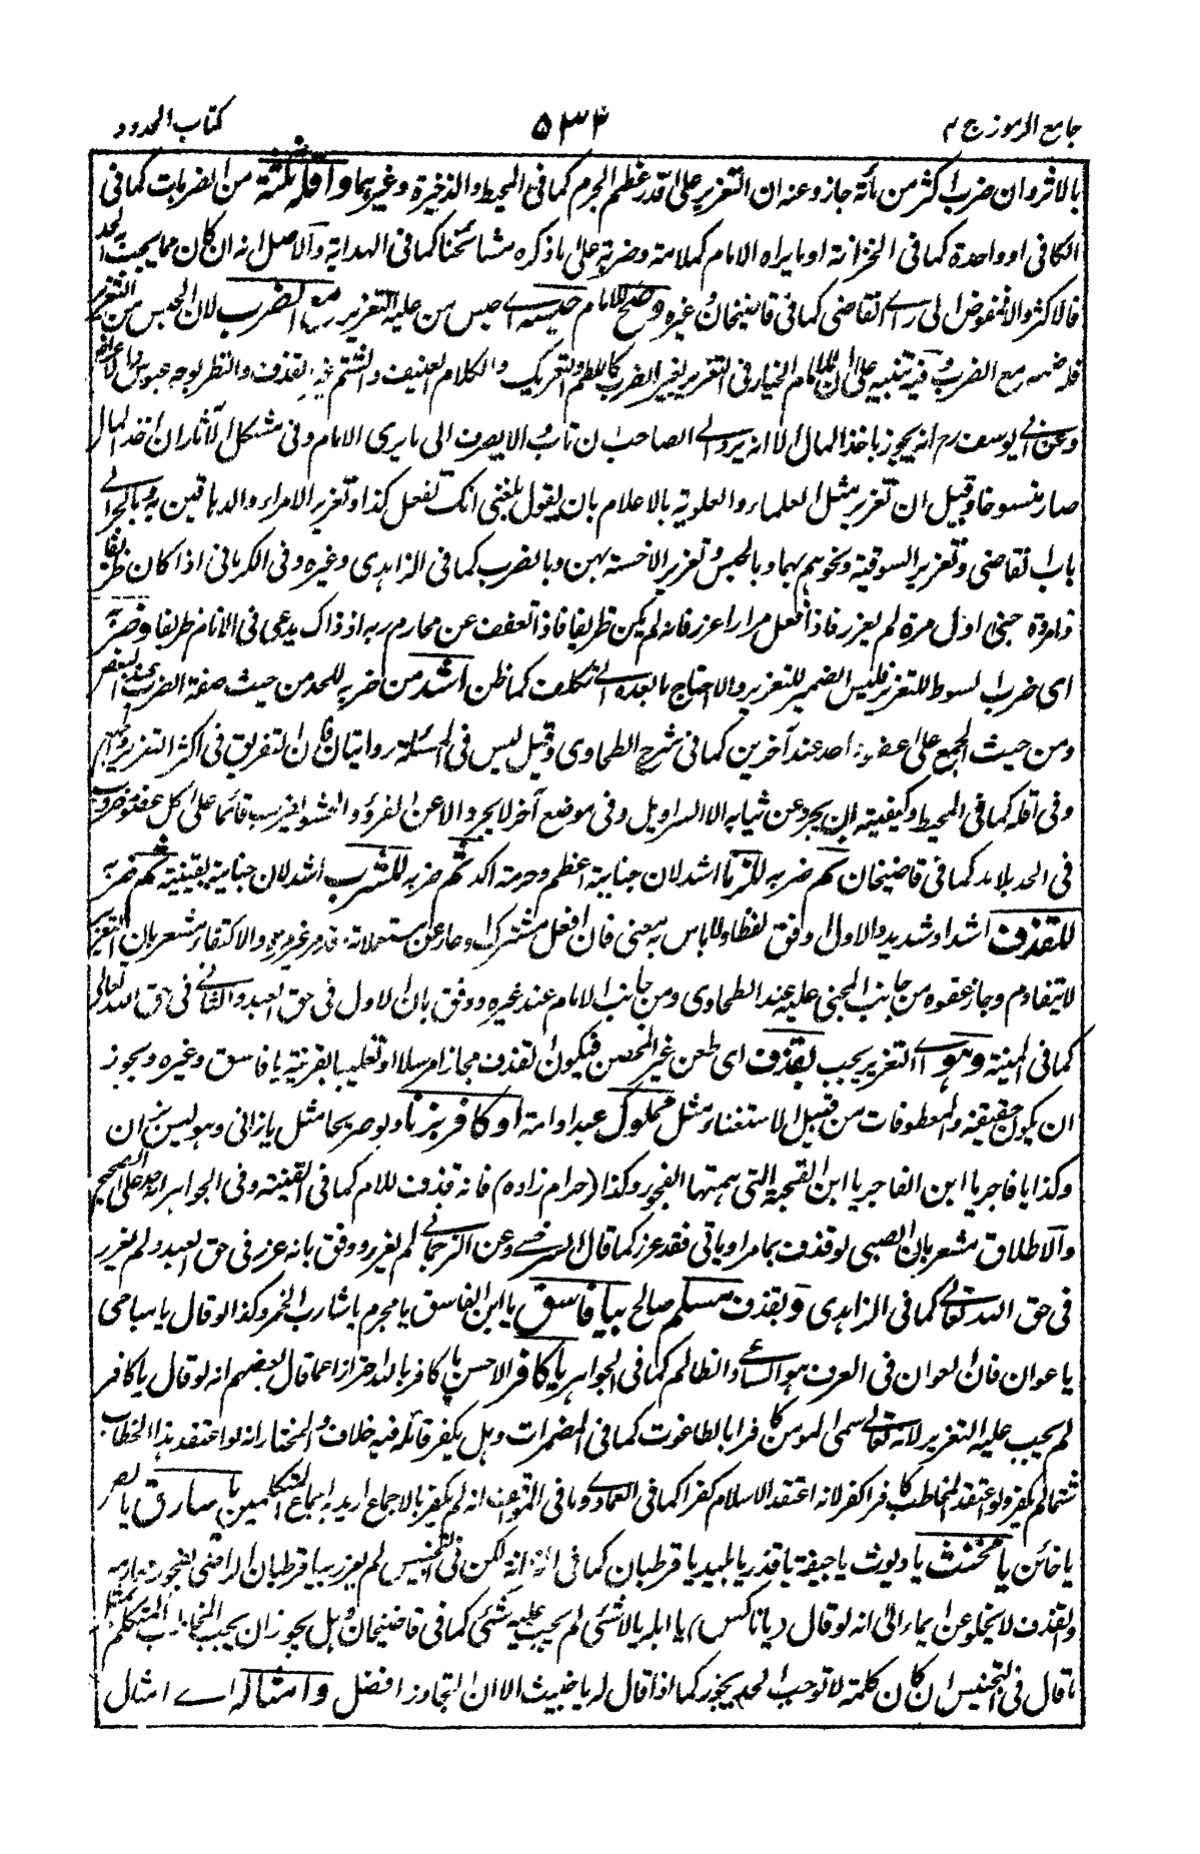 جامع الرموز ج ۴ ۵۳۴ كتاب الحدود
بالاثر وان ضرب اكثر من مأته جاز وعنه ان التعزير على قدر عظم الجرم كما فى المحيط والذخيرة وغيرهما واقله ثلثة من الضربات كما فى
الكافى او واحدة كما فى الخزانة او ما يراه الامام كملامة وضربة على ما ذكره مشائخنا كما فى الهداية والاصل انه ان كان مما يجب به الحد
فالاكثر والا فمفوض الى راے القاضى كما فى قاضيخان وغيره وصح للامام حبسه اے حبس من عليه التعزير مع الضرب لان الحبس من التعزير
فله ضمه مع الضرب وفيه تنبيه على ان للامام الخيار فى التعزير بغير الضرب كاللطم والتعريك والكلام العنيف والشتم غير القذف والنظر بوجه عبوس
وعن ابى يوسف رح انه يجوز باخذ المال الا انه يرد الے الصاحب ان تاب والا يصرف الى ما يرى الامام وفى مشكل الآثار ان اخذ المال
صار منسوخا وقيل ان تعزير مثل العلماء والعلوية بالاعلام بان يقول بلغنى انك تفعل كذا وتعزير الامراء والدهاقين به وبالجر الے
باب القاضى وتعزير السوقية ونحوهم بهما وبالحبس وتعزير الاخسة بهن وبالضرب كما فى الزاهدى وغيره وفى الكرمانى اذا كان ظريفا
ذا مروة جنى اول مرة لم يعزر فاذا فعل مرارا عزر فانه لم يكن ظريفا فاذا تعفف عن محارم ربه اذ ذاك يدعى فى الانام ظريفا وضربه
اى ضرب السوط للتعزير فليس الضمير للتعزير والاحتاج ما بعده الے التكلف كما ظن اشد من ضربه للحد من حيث صفة الضرب عند البعض
ومن حيث الجمع على عضو واحد عند آخرين كما فى شرح الطحاوى وقيل ليس فى المسئلة روايتان فان التفريق فى اكثر التعزير والجمع
وفى اقله كما فى المحيط وكيفيته ان يجرد عن ثيابه الا السراويل وفى موضع آخر لا يجرد الا عن الفرو والحشو ويضرب قائما على كل عضو
فى الحد بلا مد كما فى قاضيخان ثم ضربه للزنا اشد لان جنايته اعظم وحرمته اكد ثم ضربه للشرب اشد لان جنايته يقينية ثم ضربه
للقذف اشد او شديد والاول اوفق لفظا ولا باس به معنى فان افعل مشترك وعار عن استعمالاته والاكتفاء مشعر بان التعزير
لا يتقادم وجاز عفوه من جانب المجنى عليه عند الطحاوى ومن جانب الامام عند غيره ووفق بان الاول فى حق العبد والثانے فى حق الله تعالى
كما فى المنية وهو اے التعزير يجب بقذف اى طعن غير المحصن فيكون القذف مجازا مرسلا او تغليبا بقرينة يا فاسق وغيره ويجوز
ان يكون حقيقته والمعطوفات من قبيل الاستغناء مثل مملوك عبد او امة او كافر بزنا ولو صريحا مثل يا زانى
وكذا يا فاجر يا ابن الفاجر يا ابن القحبة التى همتها الفجور وكذا (حرام زاده) فانه قذف للام كما فى القنية وفى الجواهر انه حد على الصحيح
والاطلاق مشعر بان الصبى لو قذف بما مر او ياتى فقد عزر كما قال السرخسے وعن الترجمانے لم يعزر ووفق بانه عزر فى حق العبد ولم يعزر
فى حق الله تعالے كما فى الزاهدى وبقذف مسلم صالح بيا فاسق يا ابن الفاسق يا مجرم يا شارب الخمر وكذا لو قال يا مباحى
يا عوان فان العوان فى العرف هو الساعے والظالم كما فى الجواهر يا كافر الاحسن يا كافر بالله احترازا عما قال بعضهم انه لو قال يا كافر
لم يجب عليه التعزير لانه تعالے سمى المومن كافرا بالطاغوت كما فى المضمرات وهل يكفر قائله فيه خلاف والمختار انه لو اعتقد هذا الخطاب
شتما لم يكفر ولو اعتقد المخاطب كافرا كفر لانه اعتقد الاسلام كفرا كما فى العمادے وما فى المواقف انه لم يكفر بالاجماع اريد به اجماع المتكلمين يا سارق يا لص
يا خائن يا مخنث يا ديوث يا جيفة يا قذر يا بليد يا قرطبان كما فى الخزانة لكن فى التجنيس لم يعزر بيا قرطبان
والقذف لا يخلو عن ايماء الى انه لو قال (يا ناكس) يا ابله يا لاشئى لم يجب عليه شئى كما فى قاضيخان وهل يجوز ان يجيب المخاطب المتكلم بمثل
ما قال فى التجنيس ان كان كلمة لا توجب الحد يجوز كما اذا قال له يا خبيث الا ان التجاوز افضل وامثاله اے امثال